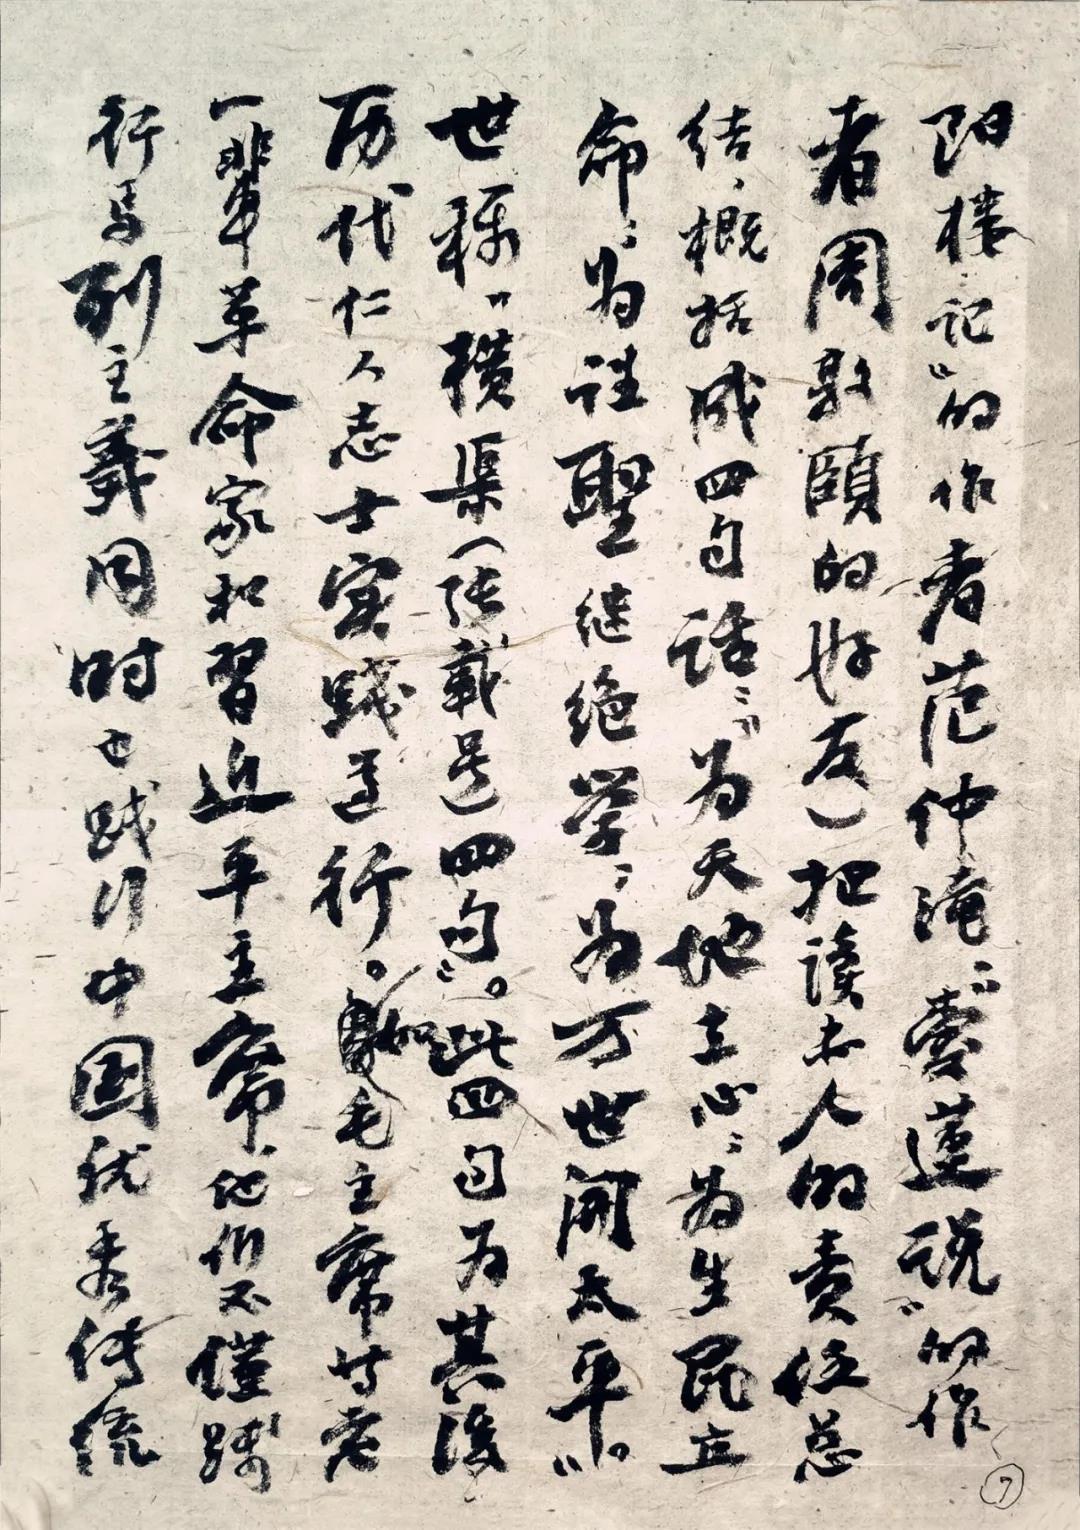 阳楼记”的作者范仲淹、“爱莲说”的作
者周敦颐的好友）把读书人的责任总
结、概括成四句话：“为天地立心、为生民立
命、为往聖继绝学、为万世開太平”。
世称“横渠（张载号）四句”。此四句为其後
历代仁人志士实践遵行。如毛主席等老
一辈革命家和習近平主席、他们不僅践
行马列主義同时也践行中国优秀传统
⑦